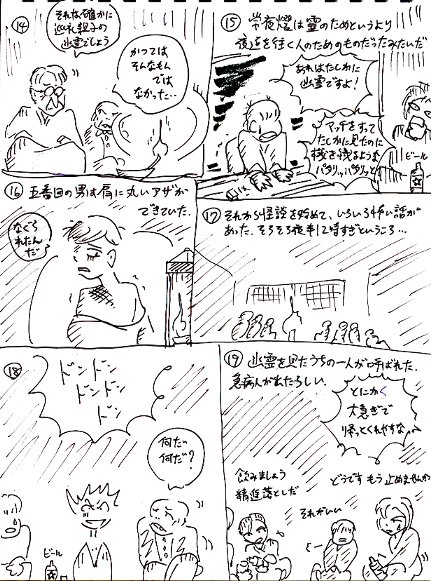 ⑭
それは確かに
巡礼親子の
幽霊でしょう
かつては
そんなもん
では
なかった…
⑮ 常夜燈は霊のためというより
夜道を往く人のためのものだったみたいだ
あれはたしかに
幽霊ですよ！
マッチをすって
たしかに見たのに
ビール
⑯ 五番目の男は肩に丸いアザが
できていた.
なぐら
れたんだ
⑰ それから怪談を始めて、いろいろ怖い話が
あった. そろそろ夜半1時すぎというころ…
⑱
ドンドン
ドンドン
ドン
何だ
何だ？
ビール
⑲ 幽霊を見たうちの一人が呼ばれた.
急病人が出たらしい.
とにかく
大急ぎで
帰っとくれやすな
どうです もう止めませんか
それがいい
飲みましょう
精進落としだ